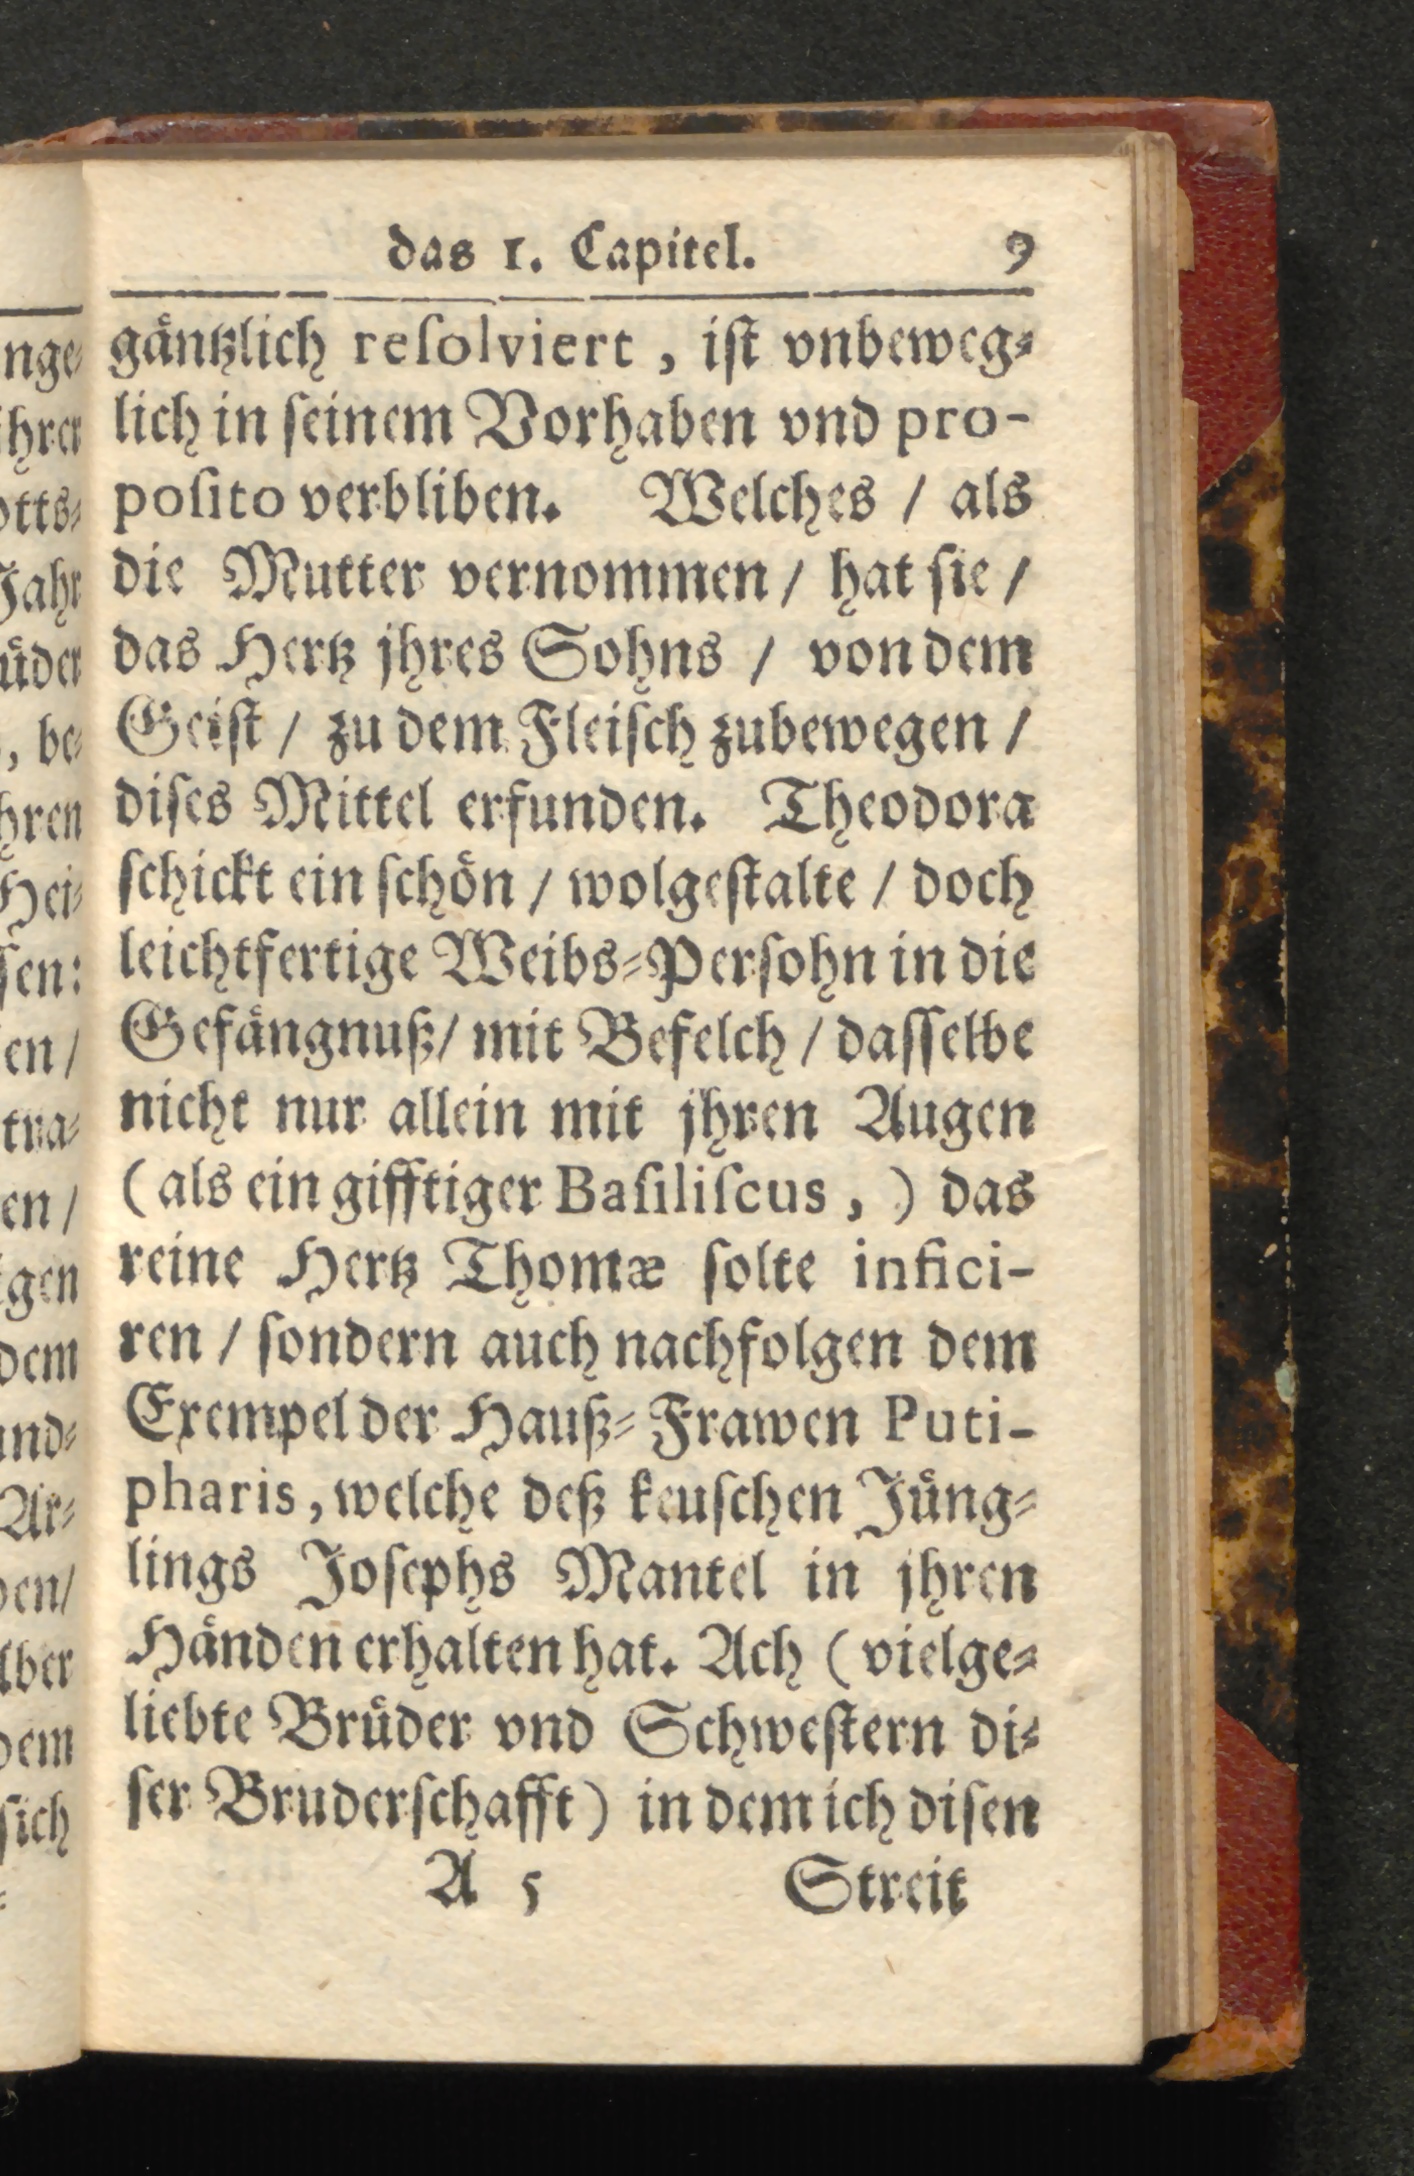 das 1. Capitel. 9
gäntzlich reſolviert, iſt vnbeweg⸗
lich in ſeinem Vorhaben vnd pro-
poſito verbliben. Welches / als
die Mutter vernommen / hat ſie /
das Hertz jhres Sohns / von dem
Geiſt / zu dem Fleiſch zubewegen /
diſes Mittel erfunden. Theodora
ſchickt ein ſchön / wolgeſtalte / doch
leichtfertige Weibs⸗Perſohn in die
Gefängnuß / mit Befelch / daſſelbe
nicht nur allein mit jhren Augen
(als ein gifftiger Baſiliſcus,) das
reine Hertz Thomæ ſolte infici-
ren / ſondern auch nachfolgen dem
Exempel der Hauß⸗Frawen Puti-
pharis, welche deß keuſchen Jüng⸗
lings Joſephs Mantel in jhren
Händen erhalten hat. Ach (vielge⸗
liebte Brüder vnd Schweſtern di⸗
ſer Bruderſchafft) in dem ich diſen
A 5 Streit